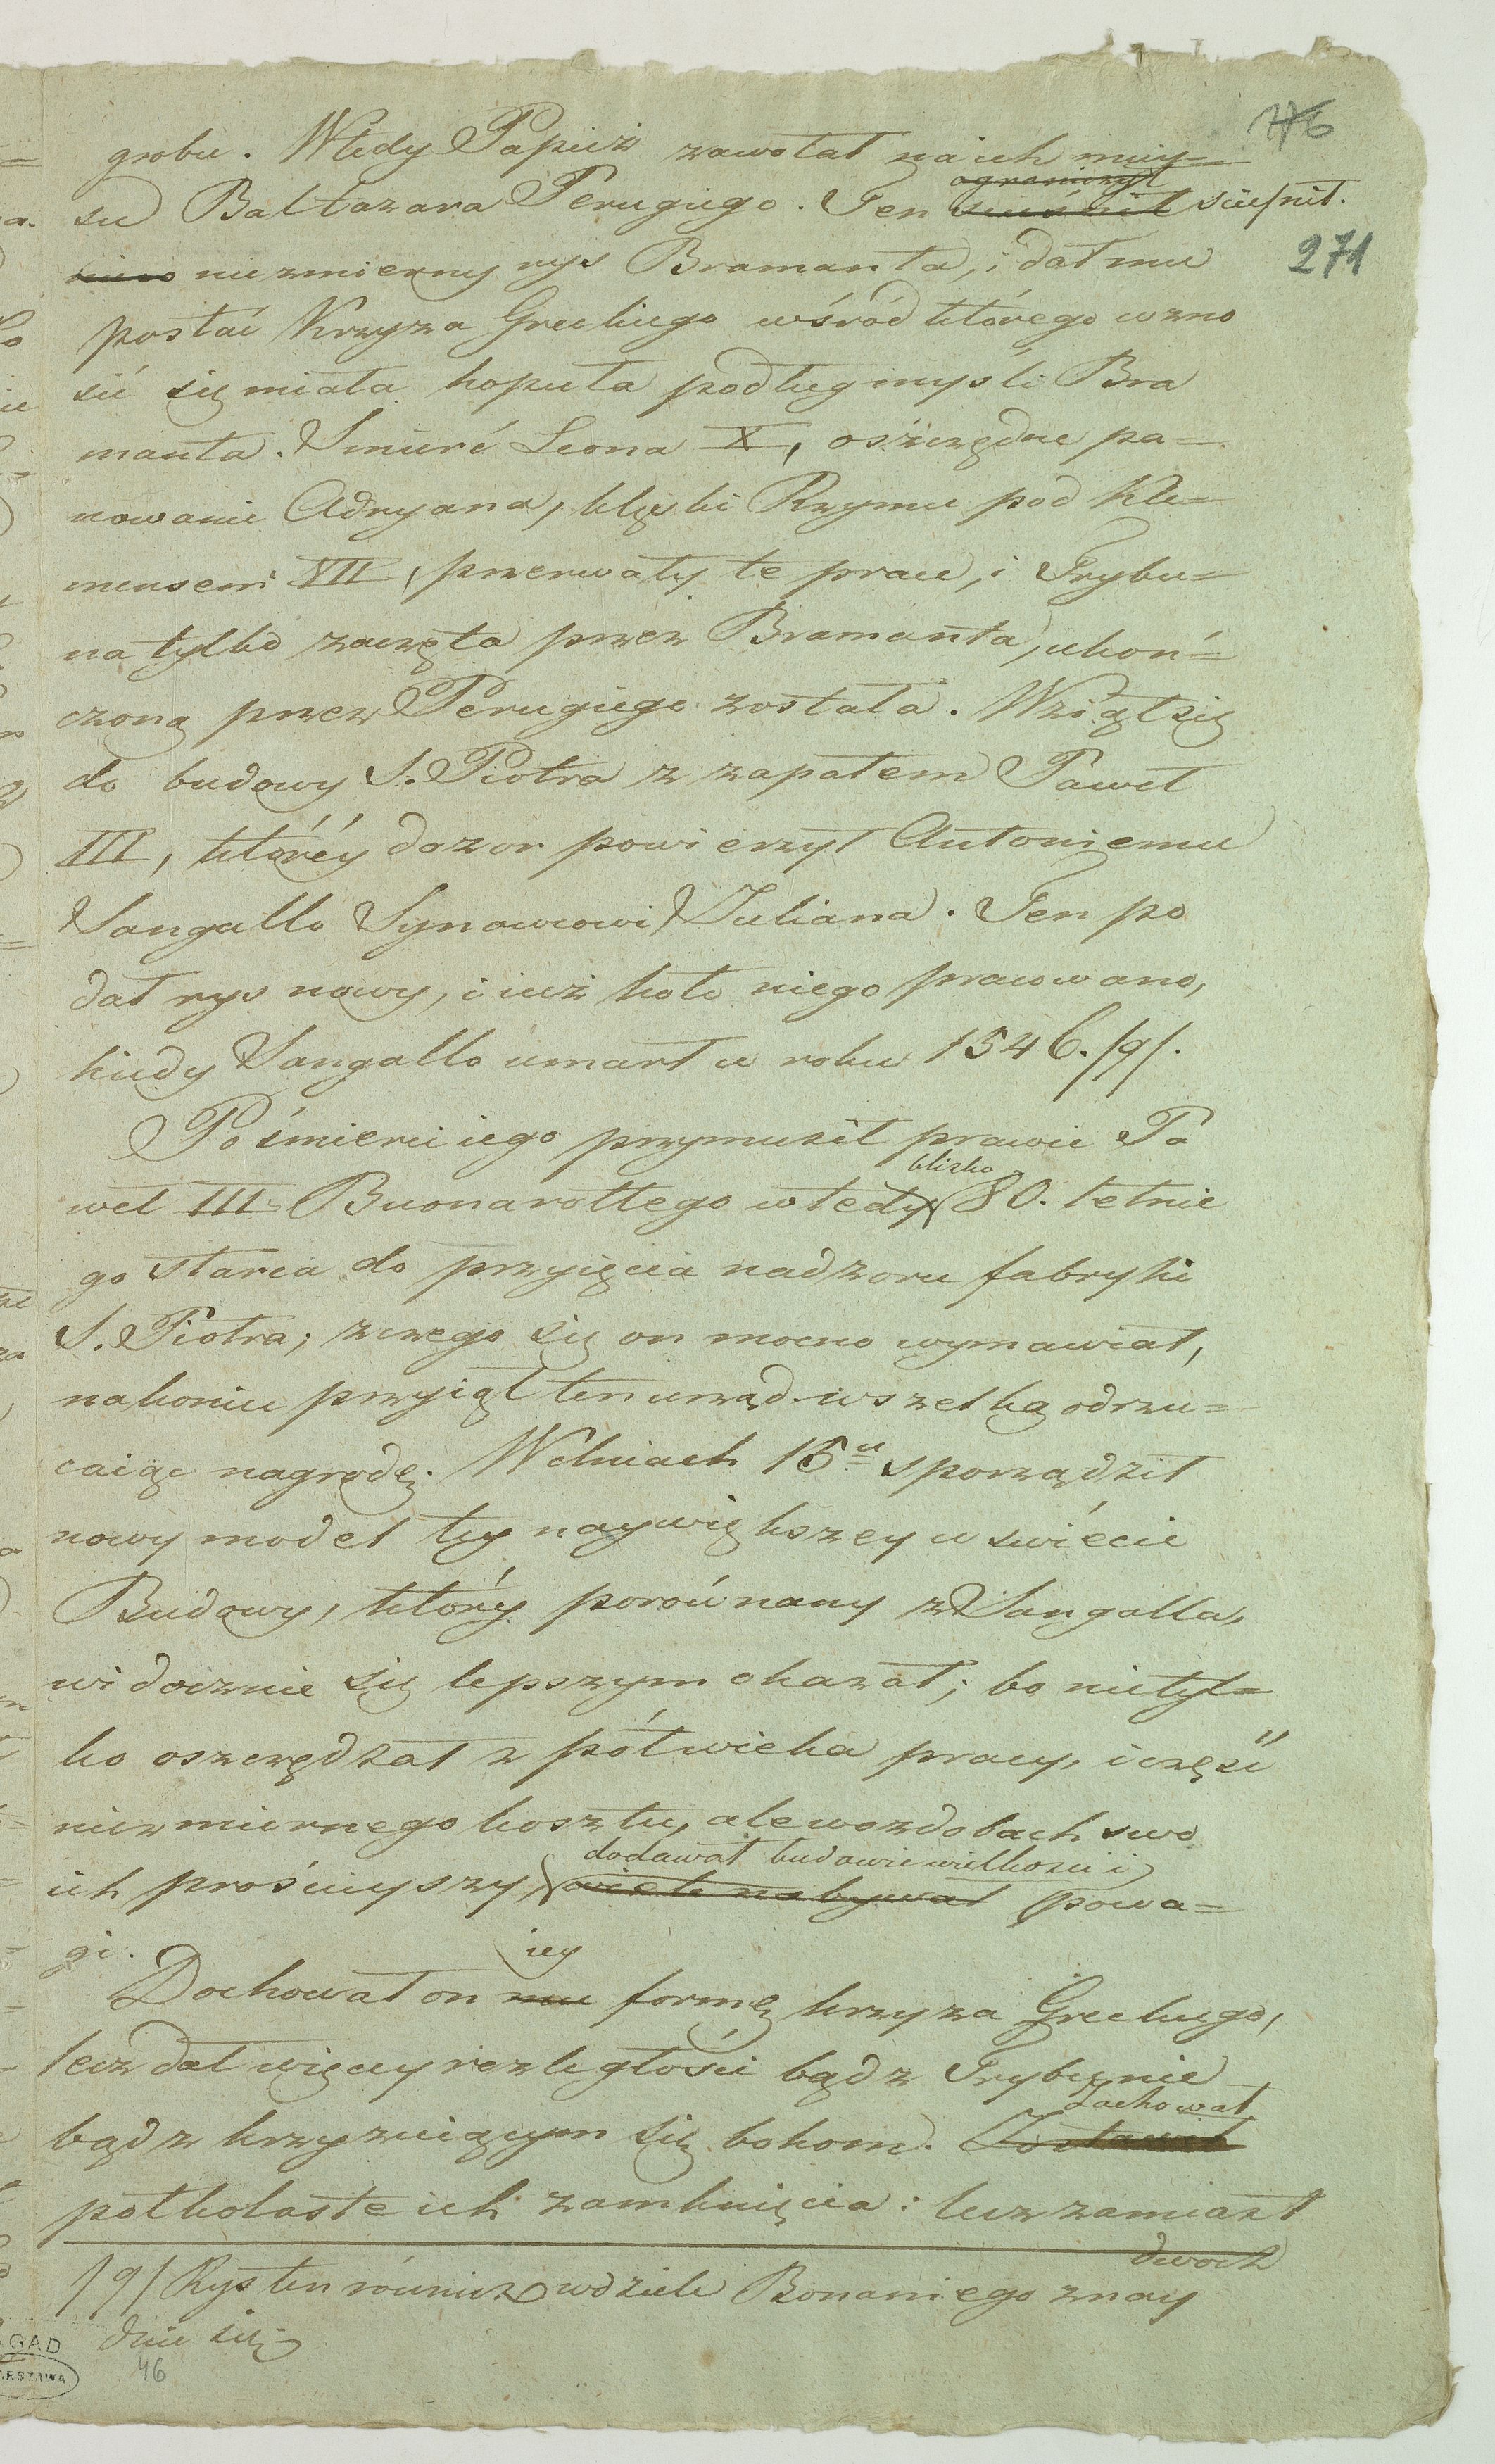 776
grobu. Wtedy Papież zawołał na ich miey=
sce Baltazara Perugiego. Ten ograniczył ścieśnił ścieśnił.
271
niezmierny rys Bramanta, i dał mu
postać Krzyza Greckiego wśród którego wzno
sić się miała kopuła podług myśli Bra
manta. Smierć Leona X, oszczędne pa=
nowanie Adryana, klęski Rzymu pod Kle=
mensem VII, przerwały te prace, i Trybu=
na tylko zaczęta przez Bramanta, ukoń=
czoną przez Perugiego została. Wziął się
do budowy S. Piotra z zapałem Paweł
III, któréy dozor powierzył Antoniemu
Sangallo Synowcowi Juliana. Ten po
dał rys nowy, i iuż koło niego pracowano,
kiedy Sangallo umarł w roku 1546. /9/.
Po śmierci iego przymusił prawie Pa
weł III Buonarottego wtedy blizko 80. letnie
go starca do przyięcia nadzoru fabryki
S. Piotra; z czego się on mocno wymawiał,
nakoniec przyiął ten urząd wszelką odrzu=
caiąc nagrodę. W dniach 15u sporządził
nowy model tey naywiększey w świecie
Budowy, który porównany z Sangalla,
widocznie się lepszym okazał; bo nietyl=
ko oszczędzał z pół wieka pracy, i część
niezmiernego kosztu, ale w ozdobach swo
ich prościeyszy, dodawał budowie wielkości i wiele nabywał powa=
gi.
Dochował on iey mu formę krzyza Greckiego,
lecz dał więcey rozległości bądz Trybunie
bądz krzyzuiącym się bokom. Zachował Zostawił
połkolaste ich zamknięcia: lecz zamiast
dwoch
/9/ Rys ten również w dziele Bonaniego znay
duie się
46
GAD
WARSZAWA